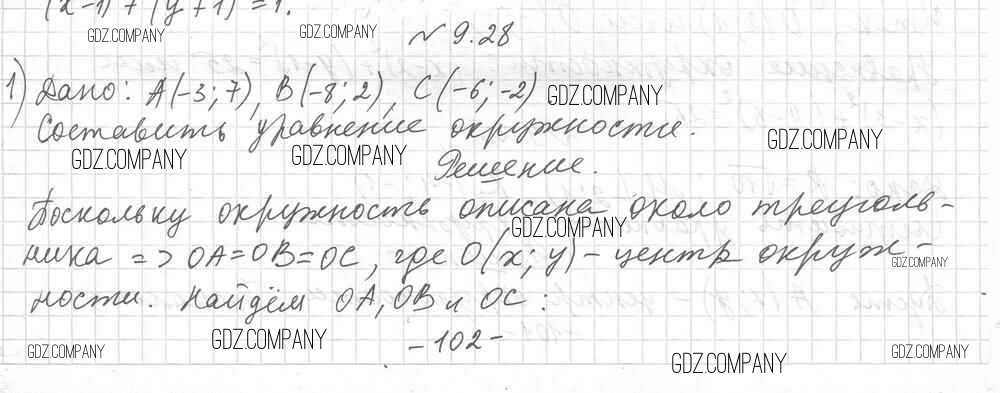 (x-1) + (y+1) = 1.
GDZ.COMPANY GDZ.COMPANY
№ 9.28
1) Дано: A(-3; 7), B(-8; 2), C(-6; -2) GDZ.COMPANY
Составить уравнение окружности.
GDZ.COMPANY GDZ.COMPANY GDZ.COMPANY
Решение.
Поскольку окружность описана около треуголь-
GDZ.COMPANY
ника => OA=OB=OC, где O(x; y) - центр окруж-
GDZ.COMPANY
ности. Найдём OA, OB и OC:
GDZ.COMPANY
-102-
GDZ.COMPANY GDZ.COMPANY GDZ.COMPANY